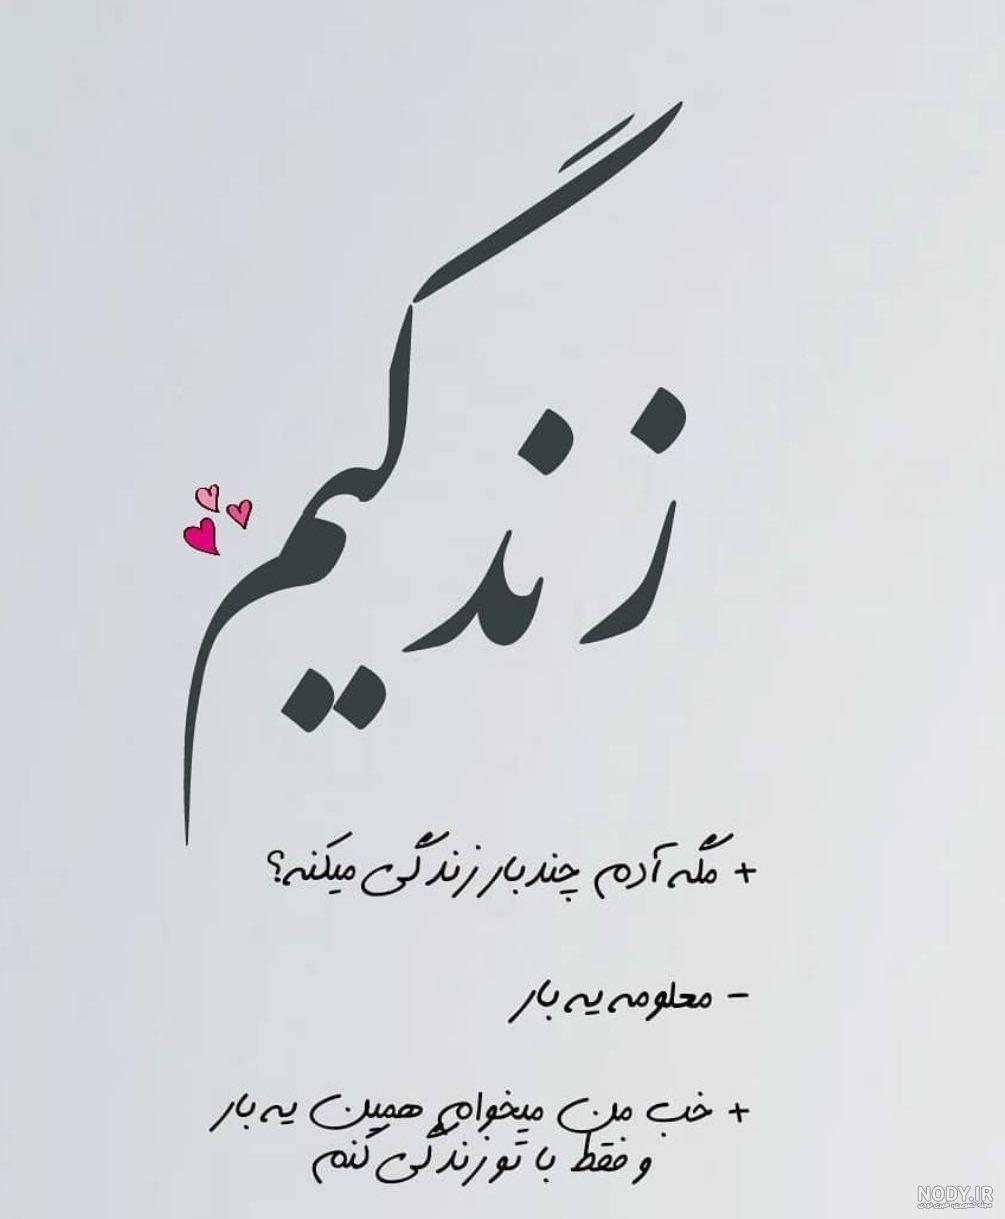 زندگیم
+ مگه آدم چند بار زندگی میکنه؟
- معلومه یه بار
+ خب من میخوام همین یه بار
و فقط با تو زندگی کنم
NODY.IR